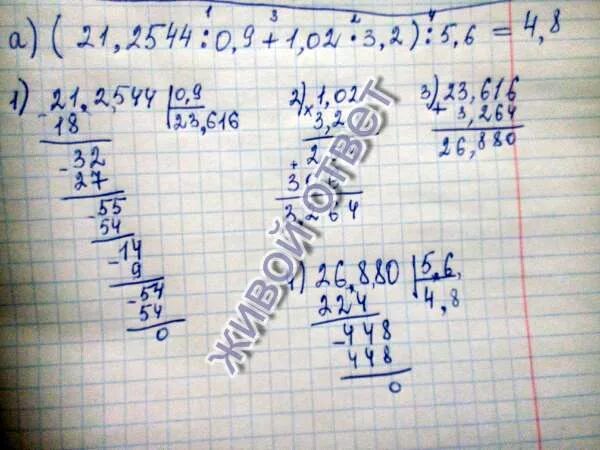 а) (21,2544 : 0,9 + 1,02 · 3,2) : 5,6 = 4,8
1 3 2 4
1) 21,2544 | 0,9
23,616
- 18
- 32
27
- 55
54
- 14
9
- 54
54
0
2) × 1,02
3,2
+ 2
3
3,264
3) 23,616
+ 3,264
26,880
) 26,880 | 5,6
4,8
224
- 448
448
0
ЖИВОЙ ОТВЕТ